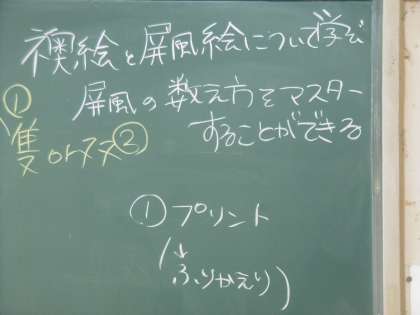 襖絵と屏風絵について学ぶ
屏風の数え方をマスター
することができる
①
隻or双②
①プリント
(↓
ふりかえり)